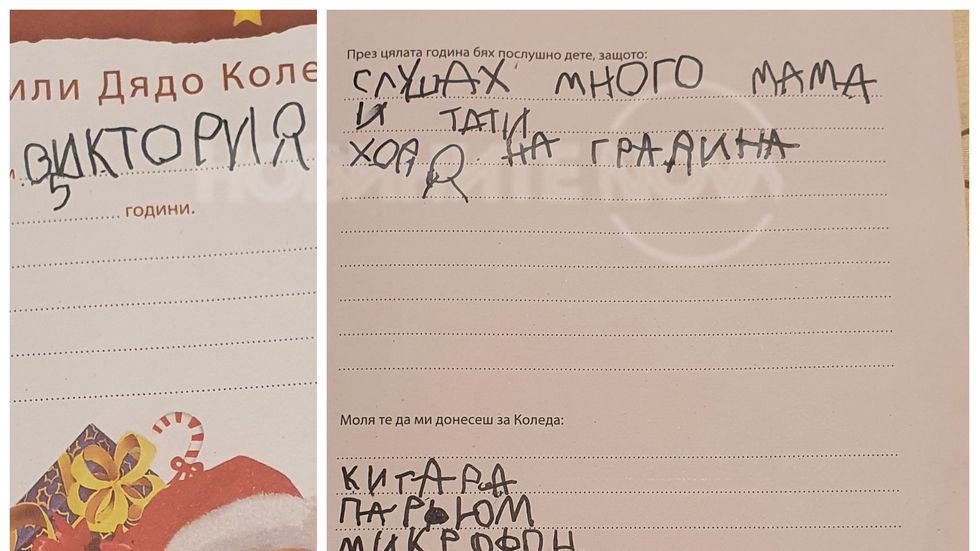 или Дядо Коле
ВИКТОРИЯ
5
години.
През цялата година бях послушно дете, защото:
СЛУШАХ МНОГО МАМА
И ТАТИ
ХОДЯ НА ГРАДИНА
НОВИНИТЕ NOVA
Моля те да ми донесеш за Коледа:
КИТАРА
ПАРФЮМ
МИКРОФОН